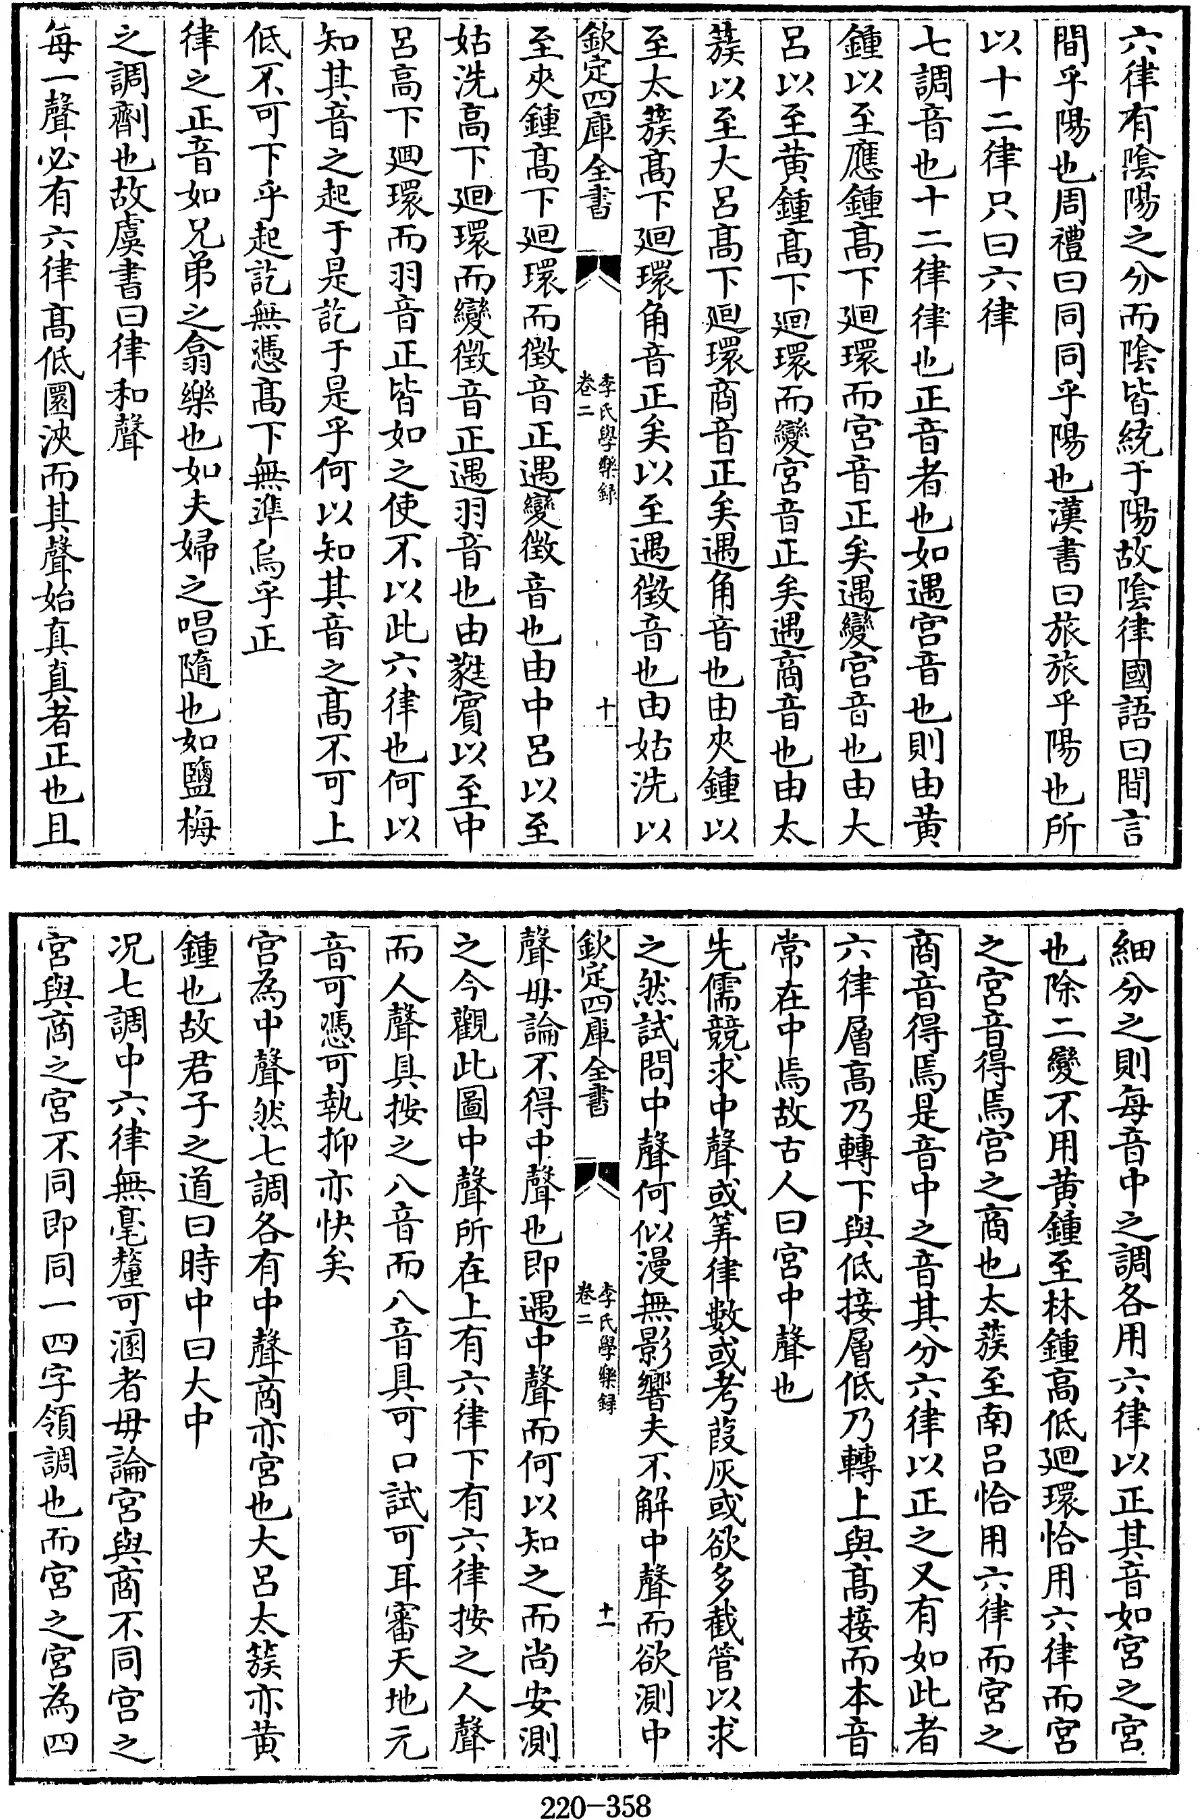 六律有陰陽之分而陰皆統于陽故陰律國語曰間言
間乎陽也周禮曰同同乎陽也漢書曰旅旅乎陽也所
以十二律只曰六律
七調音也十二律律也正音者也如遇宮音也則由黄
鍾以至應鍾髙下廻環而宮音正矣遇變宮音也由大
吕以至黄鍾髙下廻環而變宮音正矣遇商音也由太
蔟以至大吕髙下廻環商音正矣遇角音也由夾鍾以
至太蔟髙下廻環角音正矣以至遇徴音也由姑洗以
欽定四庫全書
李氏學樂録
卷二
十
至夾鍾髙下廻環而徴音正遇變徴音也由中吕以至
姑洗高下廻環而變徴音正遇羽音也由蕤賔以至中
吕高下廻環而羽音正皆如之使不以此六律也何以
知其音之起于是訖于是乎何以知其音之髙不可上
低不可下乎起訖無憑髙下無準烏乎正
律之正音如兄弟之翕樂也如夫婦之唱隨也如鹽梅
之調劑也故虞書曰律和聲
每一聲必有六律髙低圜浹而其聲始真真者正也且
細分之則每音中之調各用六律以正其音如宮之宮
也除二變不用黄鍾至林鍾高低廻環恰用六律而宮
之宮音得焉宮之商也太蔟至南吕恰用六律而宮之
商音得焉是音中之音其分六律以正之又有如此者
六律層高乃轉下與低接層低乃轉上與髙接而本音
常在中焉故古人曰宮中聲也
先儒競求中聲或筭律數或考葭灰或欲多截管以求
之然試問中聲何似漫無影響夫不解中聲而欲測中
欽定四庫全書
李氏學樂録
卷二
十一
聲毋論不得中聲也即遇中聲而何以知之而尚安測
之今觀此圖中聲所在上有六律下有六律按之人聲
而人聲具按之八音而八音具可口試可耳審天地元
音可憑可執抑亦快矣
宮為中聲然七調各有中聲商亦宮也大吕太蔟亦黄
鍾也故君子之道曰時中曰大中
况七調中六律無毫釐可溷者毋論宮與商不同宮之
宮與商之宮不同即同一四字領調也而宮之宮為四
220-358